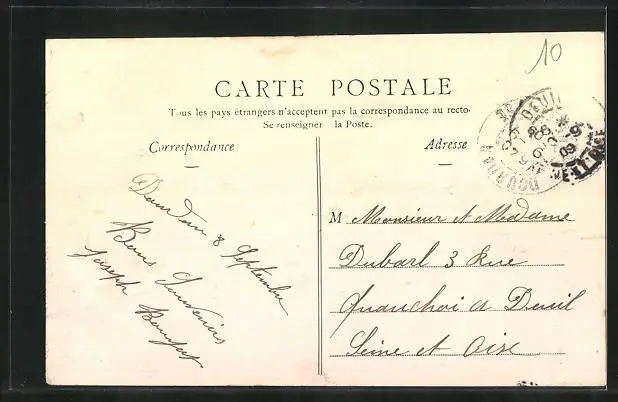 10
CARTE POSTALE
Tous les pays étrangers n'acceptent pas la correspondance au recto.
Se renseigner la Poste.
Correspondance
Adresse
Dourdan 8 Septembre
Bons Souvenirs
Joseph
M Monsieur et Madame
Dubarl 3 Rue
à Deuil
Seine et Oise
DEUIL
DOURDAN